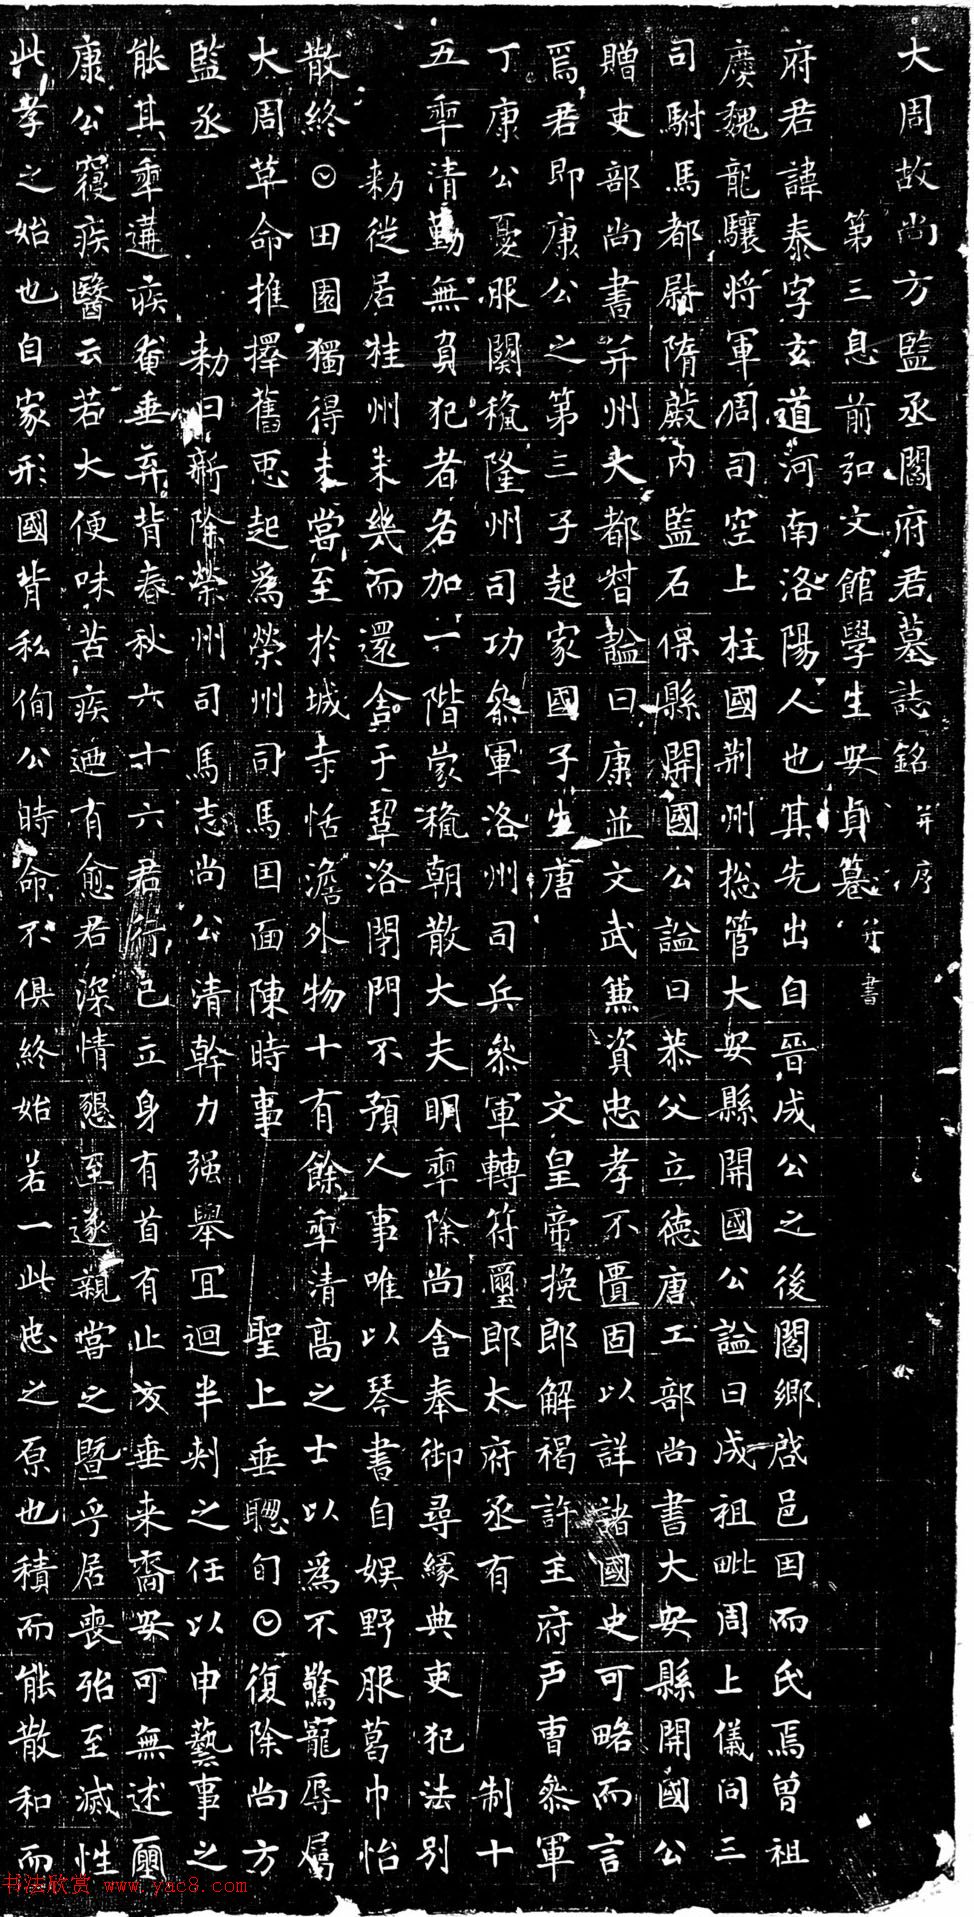 大周故尚方監丞閻府君墓誌銘并序
第三息前弘文館學生安貞篹并書
府君諱泰字玄道河南洛陽人也其先出自晉成公之後閻鄉啓邑因而氏焉曾祖
慶魏龍驤將軍周司空上柱國荆州揔管大安縣開國公謚曰成祖毗周上儀同三
司駙馬都尉隋殿內監石保縣開國公謚曰恭父立德唐工部尚書大安縣開國公
贈吏部尚書并州大都督謚曰康並文武兼資忠孝不匱固以詳諸國史可略而言
焉君即康公之第三子起家國子生唐 文皇帝挽郎解褐許王府戶曹叅軍
丁康公憂服闋稵隆州司功叅軍洛州司兵叅軍轉符璽郎太府丞有 制十
五𠡦清勤無負犯者名加一階蒙稵朝散大夫明𠡦除尚舍奉御尋緣典吏犯法別
敕徙居桂州未幾而還舍于鞏洛閉門不預人事唯以琴書自娛野服葛巾怡
散終𡆠田園獨得未嘗至於城寺恬澹外物十有餘𠡦清高之士以為不驚寵辱屬
大周革命推擇舊𢘑起為榮州司馬因面陳時事 聖上垂聰旬𡆠復除尚方
監丞 敕曰新除榮州司馬志尚公清幹力强舉冝迴半刾之任以申藝事之
能其𠡦遘疾奄垂弃背春秋六十六君行己立身有首有止义垂来裔安可無述爾
康公寢疾醫云若大便味苦疾迺有愈君深情懇至遂親嘗之暨乎居喪殆至滅性
此孝之始也自家形國背私徇公時命不俱終始若一此忠之原也積而能散和而
书法欣赏 www.yac8.com